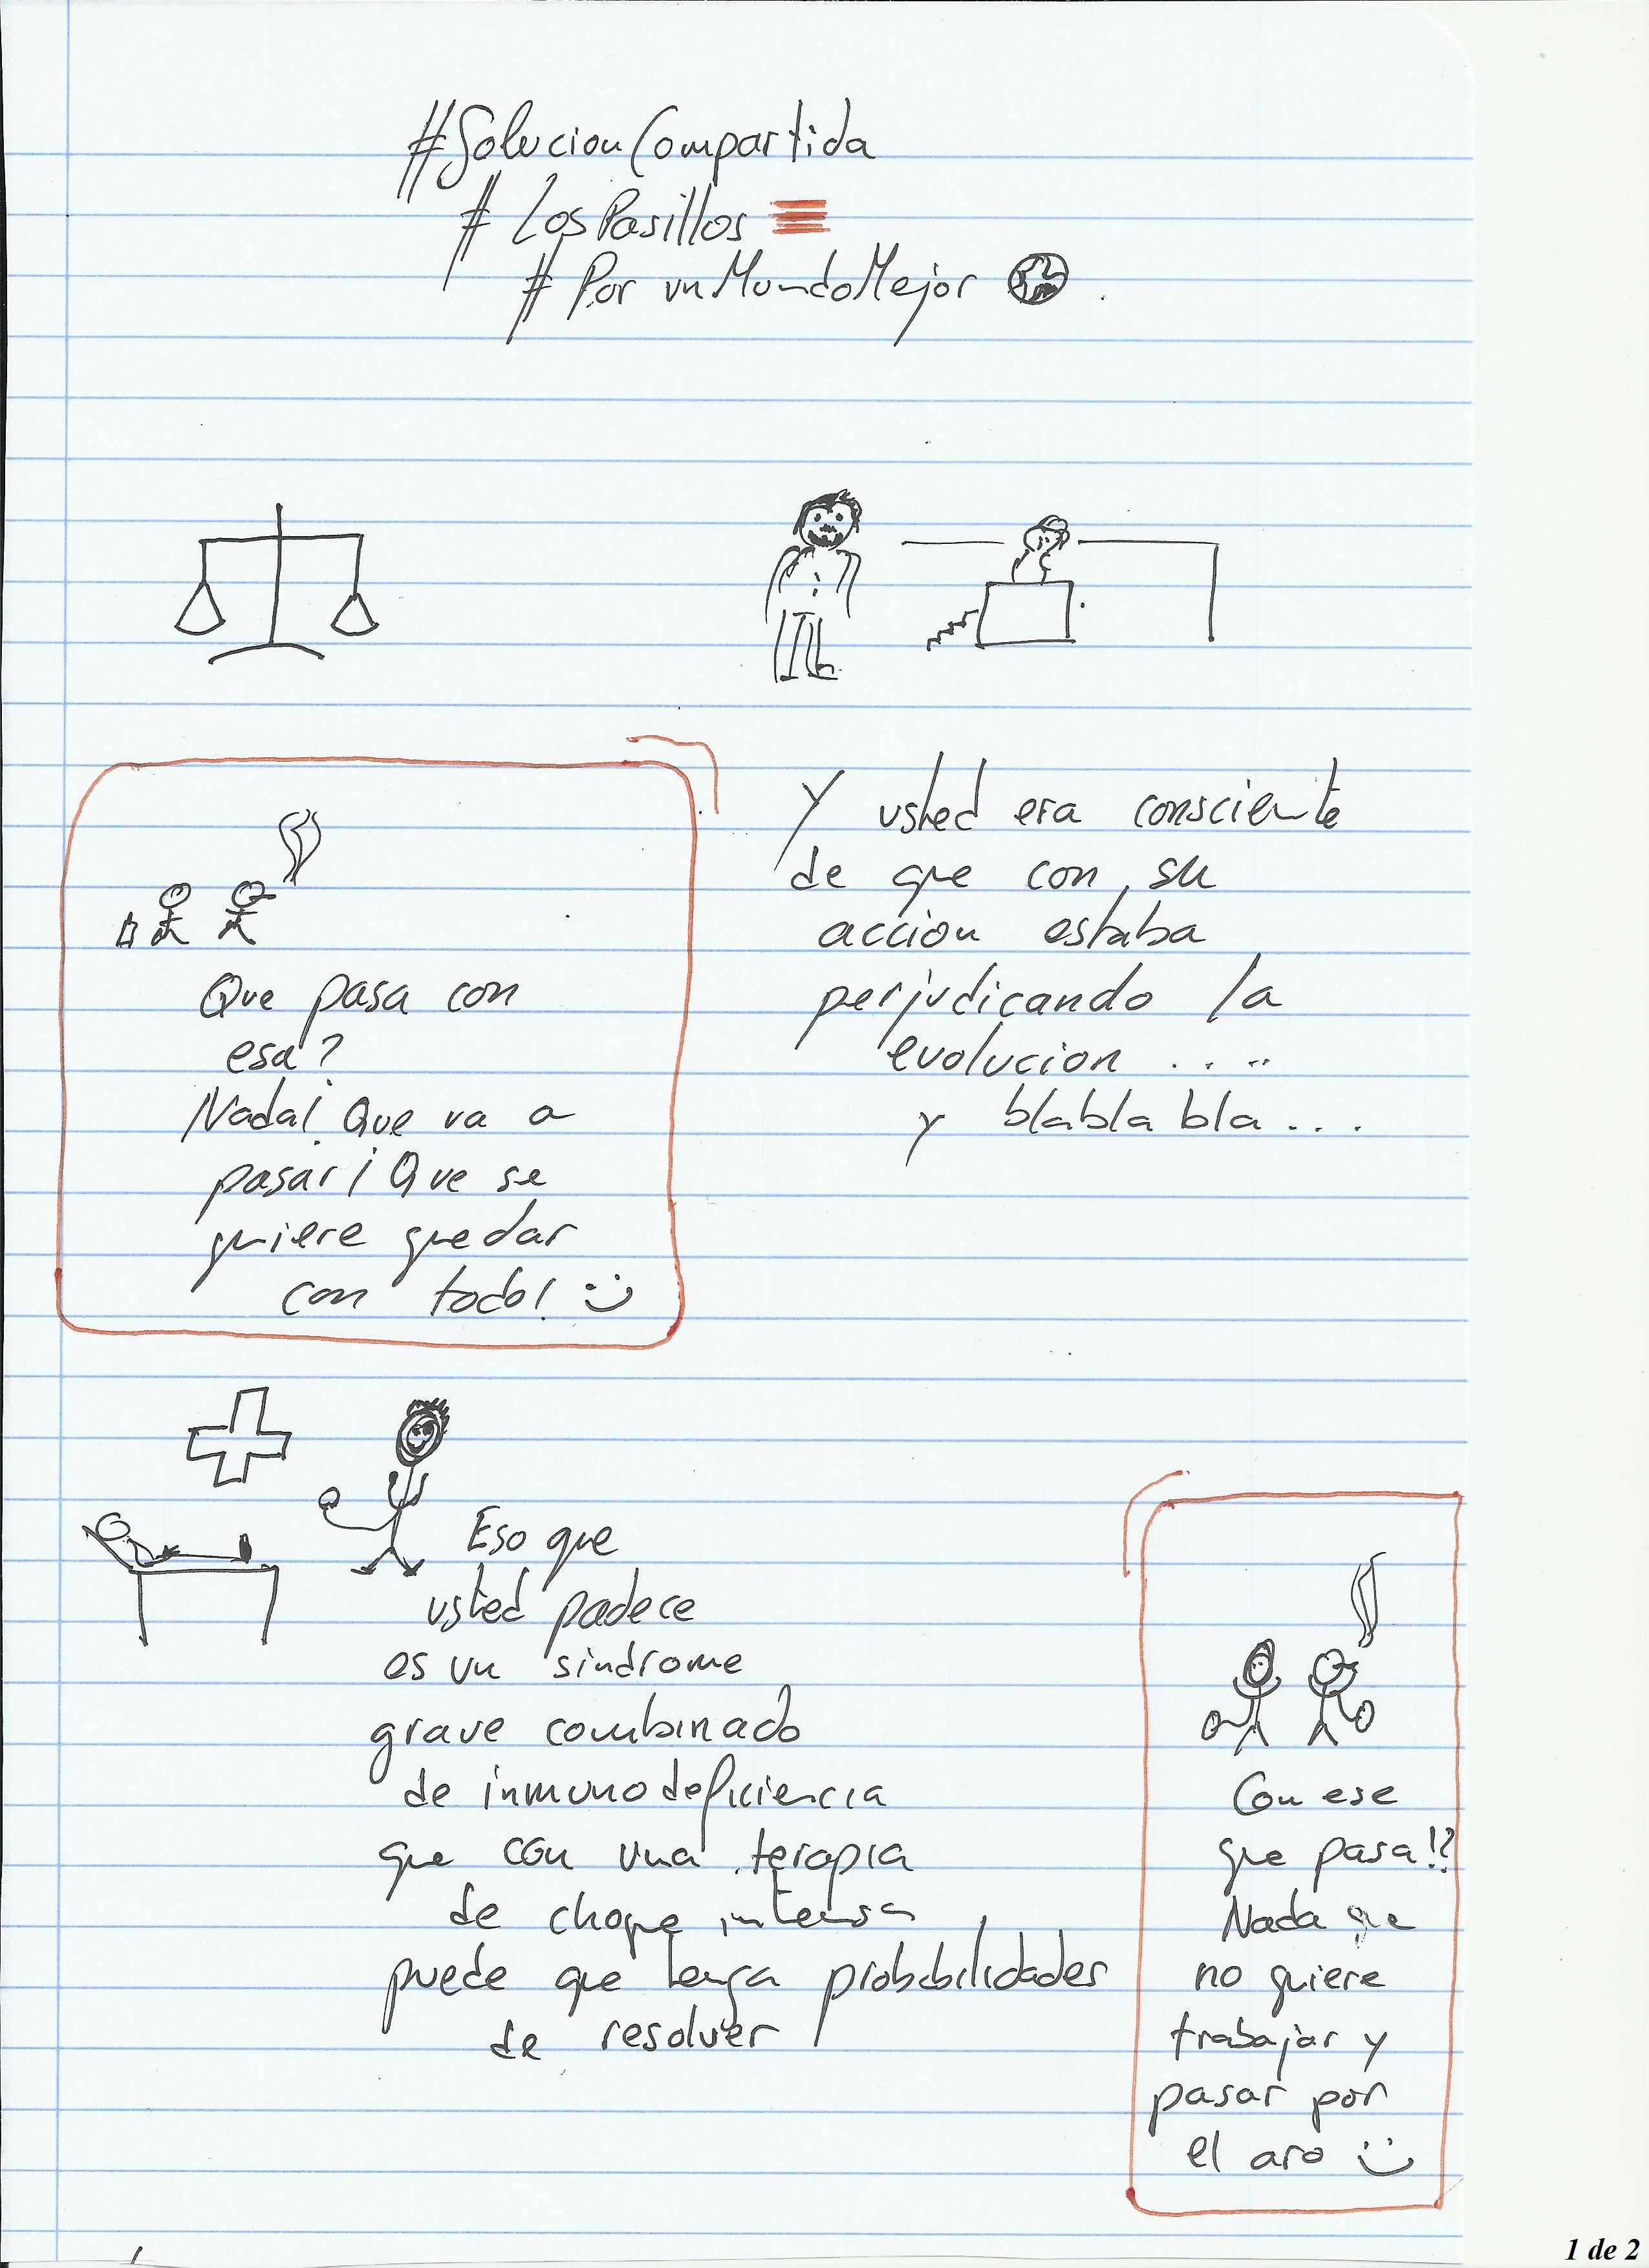 #SolucionCompartida
#LosPasillos
#PorunMundoMejor
Y usted era consciente
de que con su
accion estaba
perjudicando la
evolucion .....
y blabla bla ...
Que pasa con
esa?
Nada! Que va a
pasar! Que se
quiere quedar
con todo! :)
Eso que
usted padece
es un sindrome
grave combinado
de inmunodeficiencia
que con una terapia
de choque intensa
puede que tenga probabilidades
de resolver
Con ese
que pasa!?
Nada que
no quiere
trabajar y
pasar por
el aro :)
1 de 2